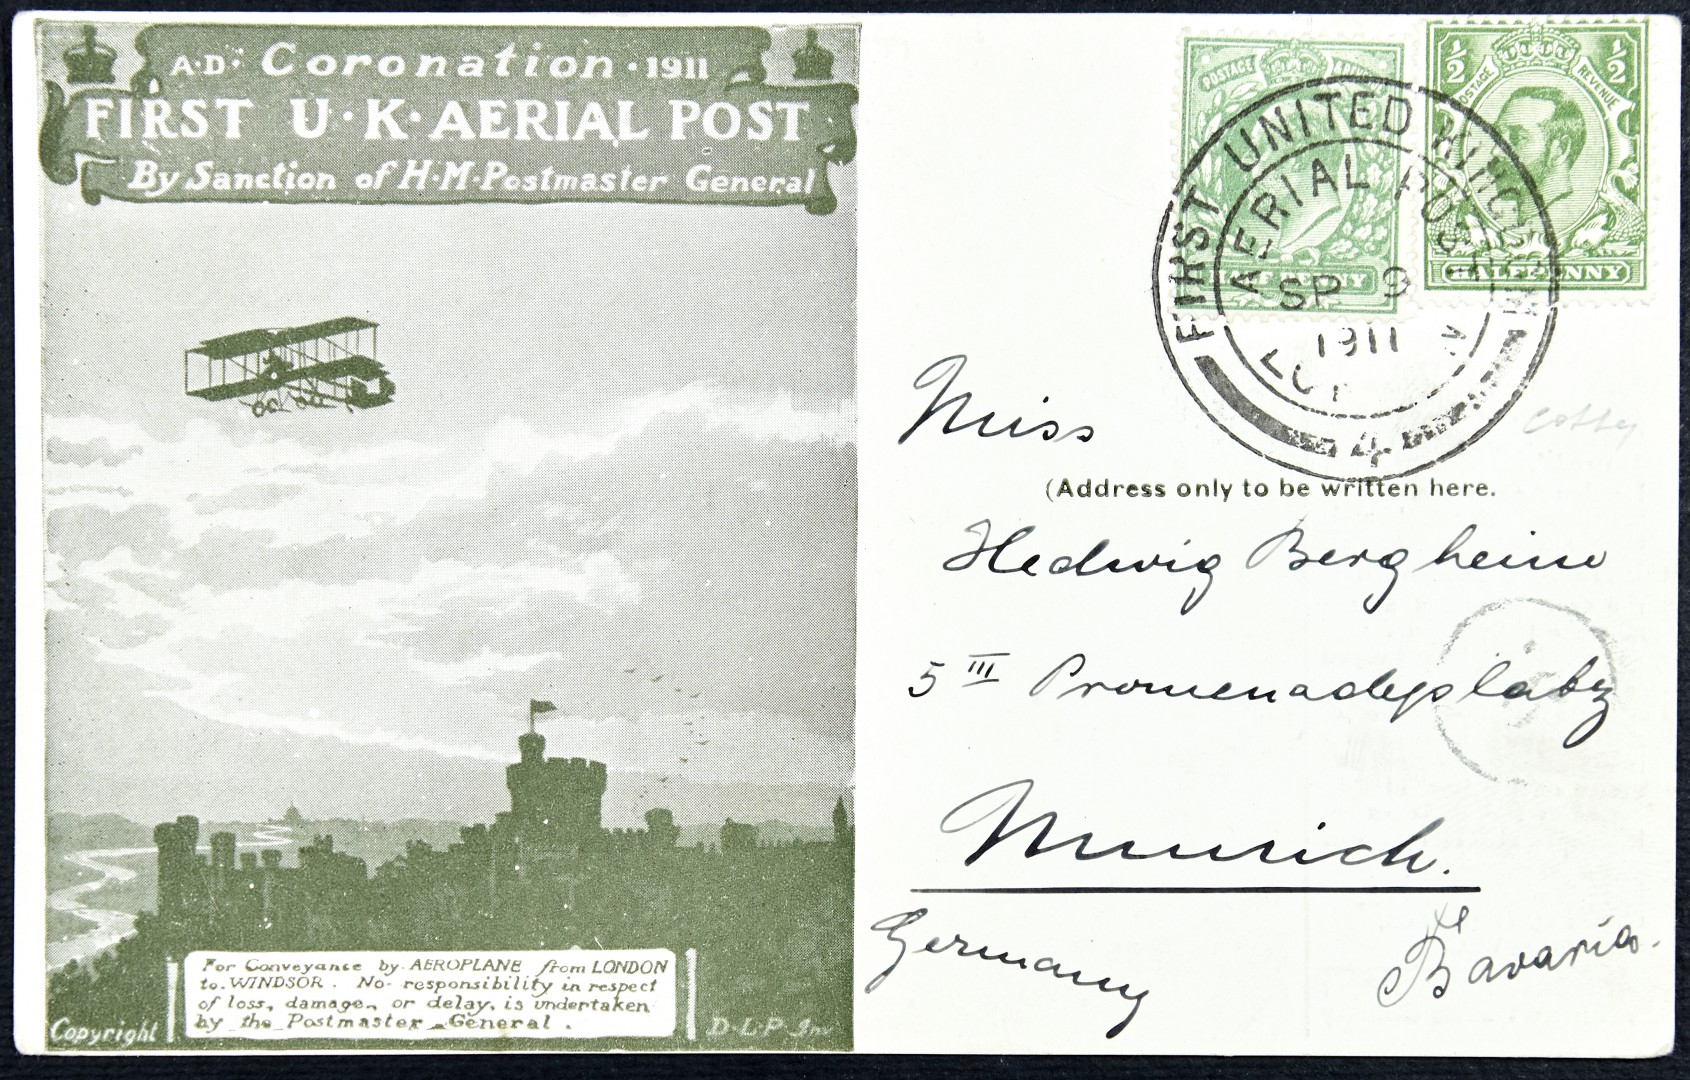 A·D· Coronation · 1911
FIRST U·K·AERIAL POST
By Sanction of H·M·Postmaster General
For Conveyance by AEROPLANE from LONDON
to WINDSOR. No responsibility in respect
of loss, damage, or delay, is undertaken
by the Postmaster General.
Copyright
D·L·P·Inv
POSTAGE
HALFPENNY
1/2
1/2
POSTAGE
REVENUE
HALFPENNY
FIRST UNITED KINGDOM
AERIAL POST
SP 9
1911
LONDON
4
Miss
(Address only to be written here.
Hedwig Bergheim
5 III Promenadeplatz
Munich.
Germany
Bavaria.